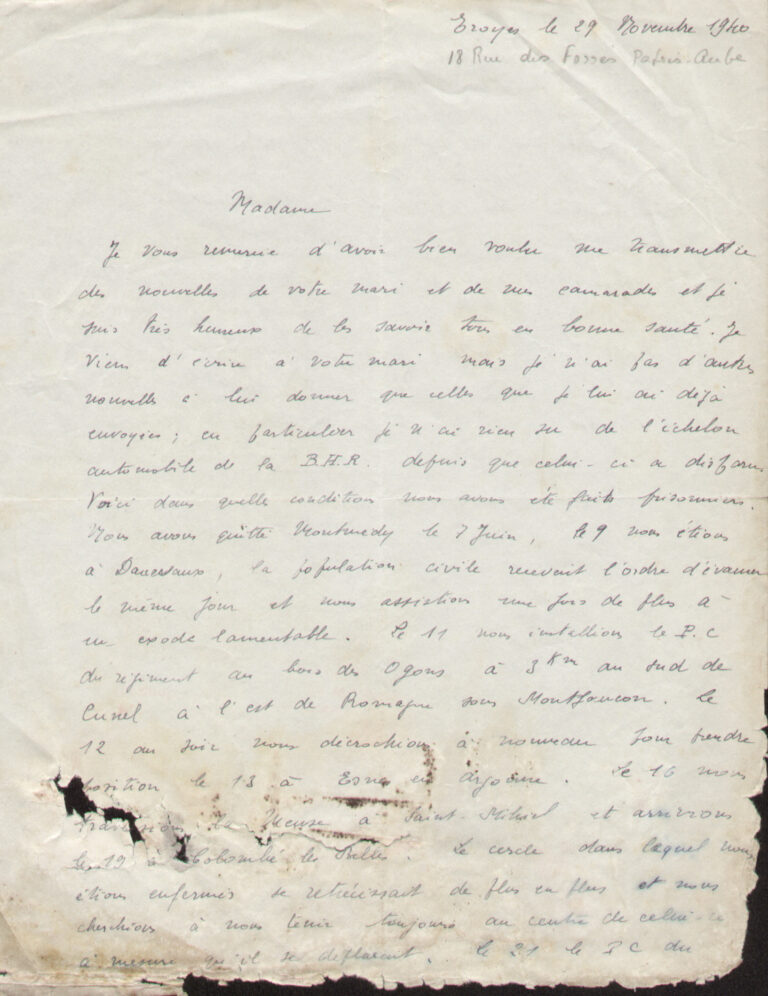 Troyes le 29 Novembre 1940
18 Rue des Fosses Patris. Aube
Madame
Je vous remercie d'avoir bien voulu me transmettre
des nouvelles de votre mari et de mes camarades et je
suis très heureux de les savoir tous en bonne santé. Je
viens d'écrire à votre mari mais je n'ai pas d'autres
nouvelles à lui donner que celles que je lui ai déjà
envoyées ; en particulier je n'ai rien su de l'échelon
automobile de la B.H.R. depuis que celui-ci a disparu
Voici dans quelle condition nous avons été faits prisonniers.
Nous avons quitté Montmedy le 7 Juin, le 9 nous étions
à la population civile recevait l'ordre d'évacuer
le même jour et nous assistions une fois de plus à
un exode lamentable. Le 11 nous installions le P.C
du régiment au bois des Ogons à 3 Km au sud de
Cunel à l'est de Romagne sous Montfaucon. Le
12 au soir nous décrochions à nouveau pour prendre
position le 13 à Esnes en Argonne. Le 16 nous
traversions la Meuse à Saint-Mihiel et arrivions
le 19 à Colombé les Belles. Le cercle dans lequel nous
étions enfermés se retrécissait de plus en plus et nous
cherchions à nous tenir toujours au centre de celui-ci
à mesure qu'il se déplaçait. Le 21 le P C du